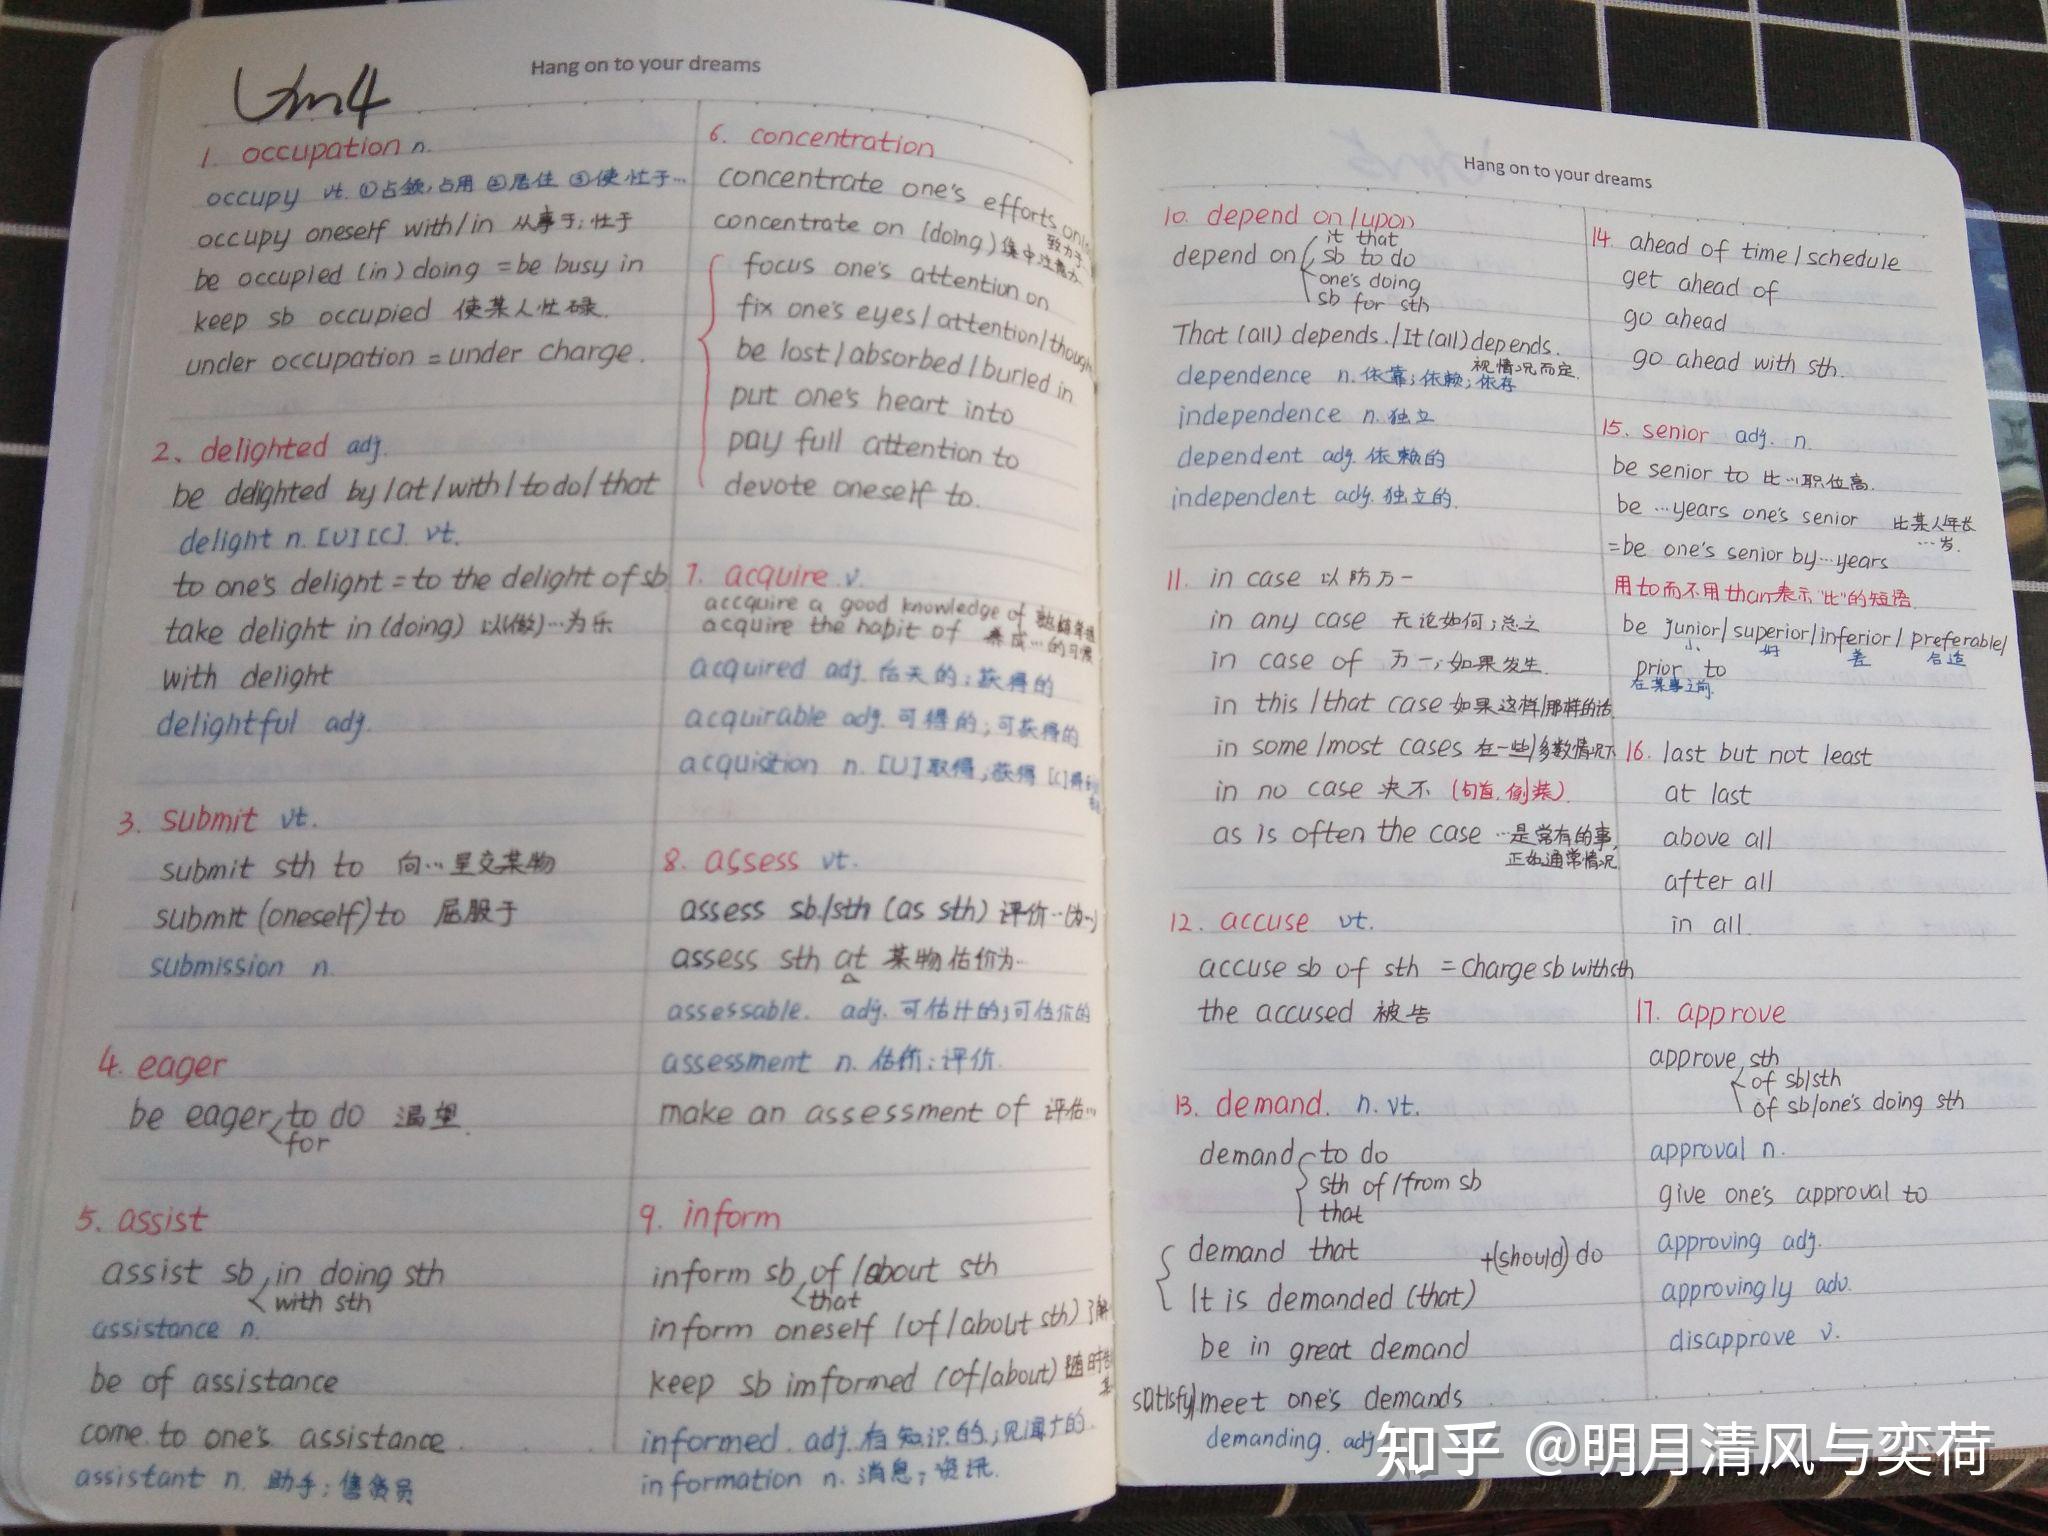 Hang on to your dreams
1. occupation n.
occupy vt. ①占领,占用 ②居住 ③使忙于…
occupy oneself with/in 从事于;忙于
be occupied (in) doing = be busy in
keep sb occupied 使某人忙碌.
under occupation = under charge.
2. delighted adj.
be delighted by/at/with/to do/that
delight n. [U][C]. vt.
to one's delight = to the delight of sb
take delight in (doing) 以(做)…为乐
with delight
delightful adj.
3. submit vt.
submit sth to 向…呈交某物
submit (oneself) to 屈服于
submission n.
4. eager
be eager to do 渴望.
for
5. assist
assist sb in doing sth
with sth
assistance n.
be of assistance
come to one's assistance.
assistant n. 助手;售货员
6. concentration
concentrate one's efforts on
致力于…
concentrate on (doing) 集中注意力
focus one's attention on
fix one's eyes/attention/though
be lost/absorbed/buried in
put one's heart into
pay full attention to
devote oneself to.
7. acquire v.
accquire a good knowledge of
acquire the habit of 养成…的习惯
acquired adj. 后天的;获得的
acquirable adj. 可得的;可获得的
acquisition n. [U]取得;获得 [C]
8. assess vt.
assess sb/sth (as sth) 评价…(为…)
assess sth at 某物估价为…
assessable. adj. 可估计的;可估价的
assessment n. 估价;评价.
make an assessment of 评估…
9. inform
inform sb of/about sth
that
inform oneself (of/about sth)
keep sb imformed (of/about) 随时
informed. adj. 有知识的;见闻广的.
information n. 消息;资讯.
Hang on to your dreams
10. depend on/upon
depend on it that
sb to do
one's doing
sb for sth
That (all) depends./It (all) depends.
视情况而定.
dependence n. 依靠;依赖;依存
independence n. 独立
dependent adj. 依赖的
independent adj. 独立的.
11. in case 以防万一
in any case 无论如何;总之
in case of 万一;如果发生.
in this/that case 如果这样/那样的话
in some/most cases 在一些/多数情况下
in no case 决不 (句首,倒装).
as is often the case …是常有的事,
正如通常情况
12. accuse vt.
accuse sb of sth = charge sb with sth
the accused 被告
13. demand. n. vt.
demand to do
sth of/from sb
that
demand that +(should) do
It is demanded (that)
be in great demand
satisfy/meet one's demands
demanding. adj
14. ahead of time/schedule
get ahead of
go ahead
go ahead with sth.
15. senior adj. n.
be senior to 比…职位高.
be …years one's senior 比某人年长
…岁.
=be one's senior by…years
用to而不用than表示"比"的短语.
be junior/superior/inferior/preferable/
小 好 差 合适
prior to
在某事之前.
16. last but not least
at last
above all
after all
in all.
17. approve
approve sth
of sb/sth
of sb/one's doing sth
approval n.
give one's approval to
approving adj.
approvingly adv.
disapprove v.
知乎 @明月清风与奕荷